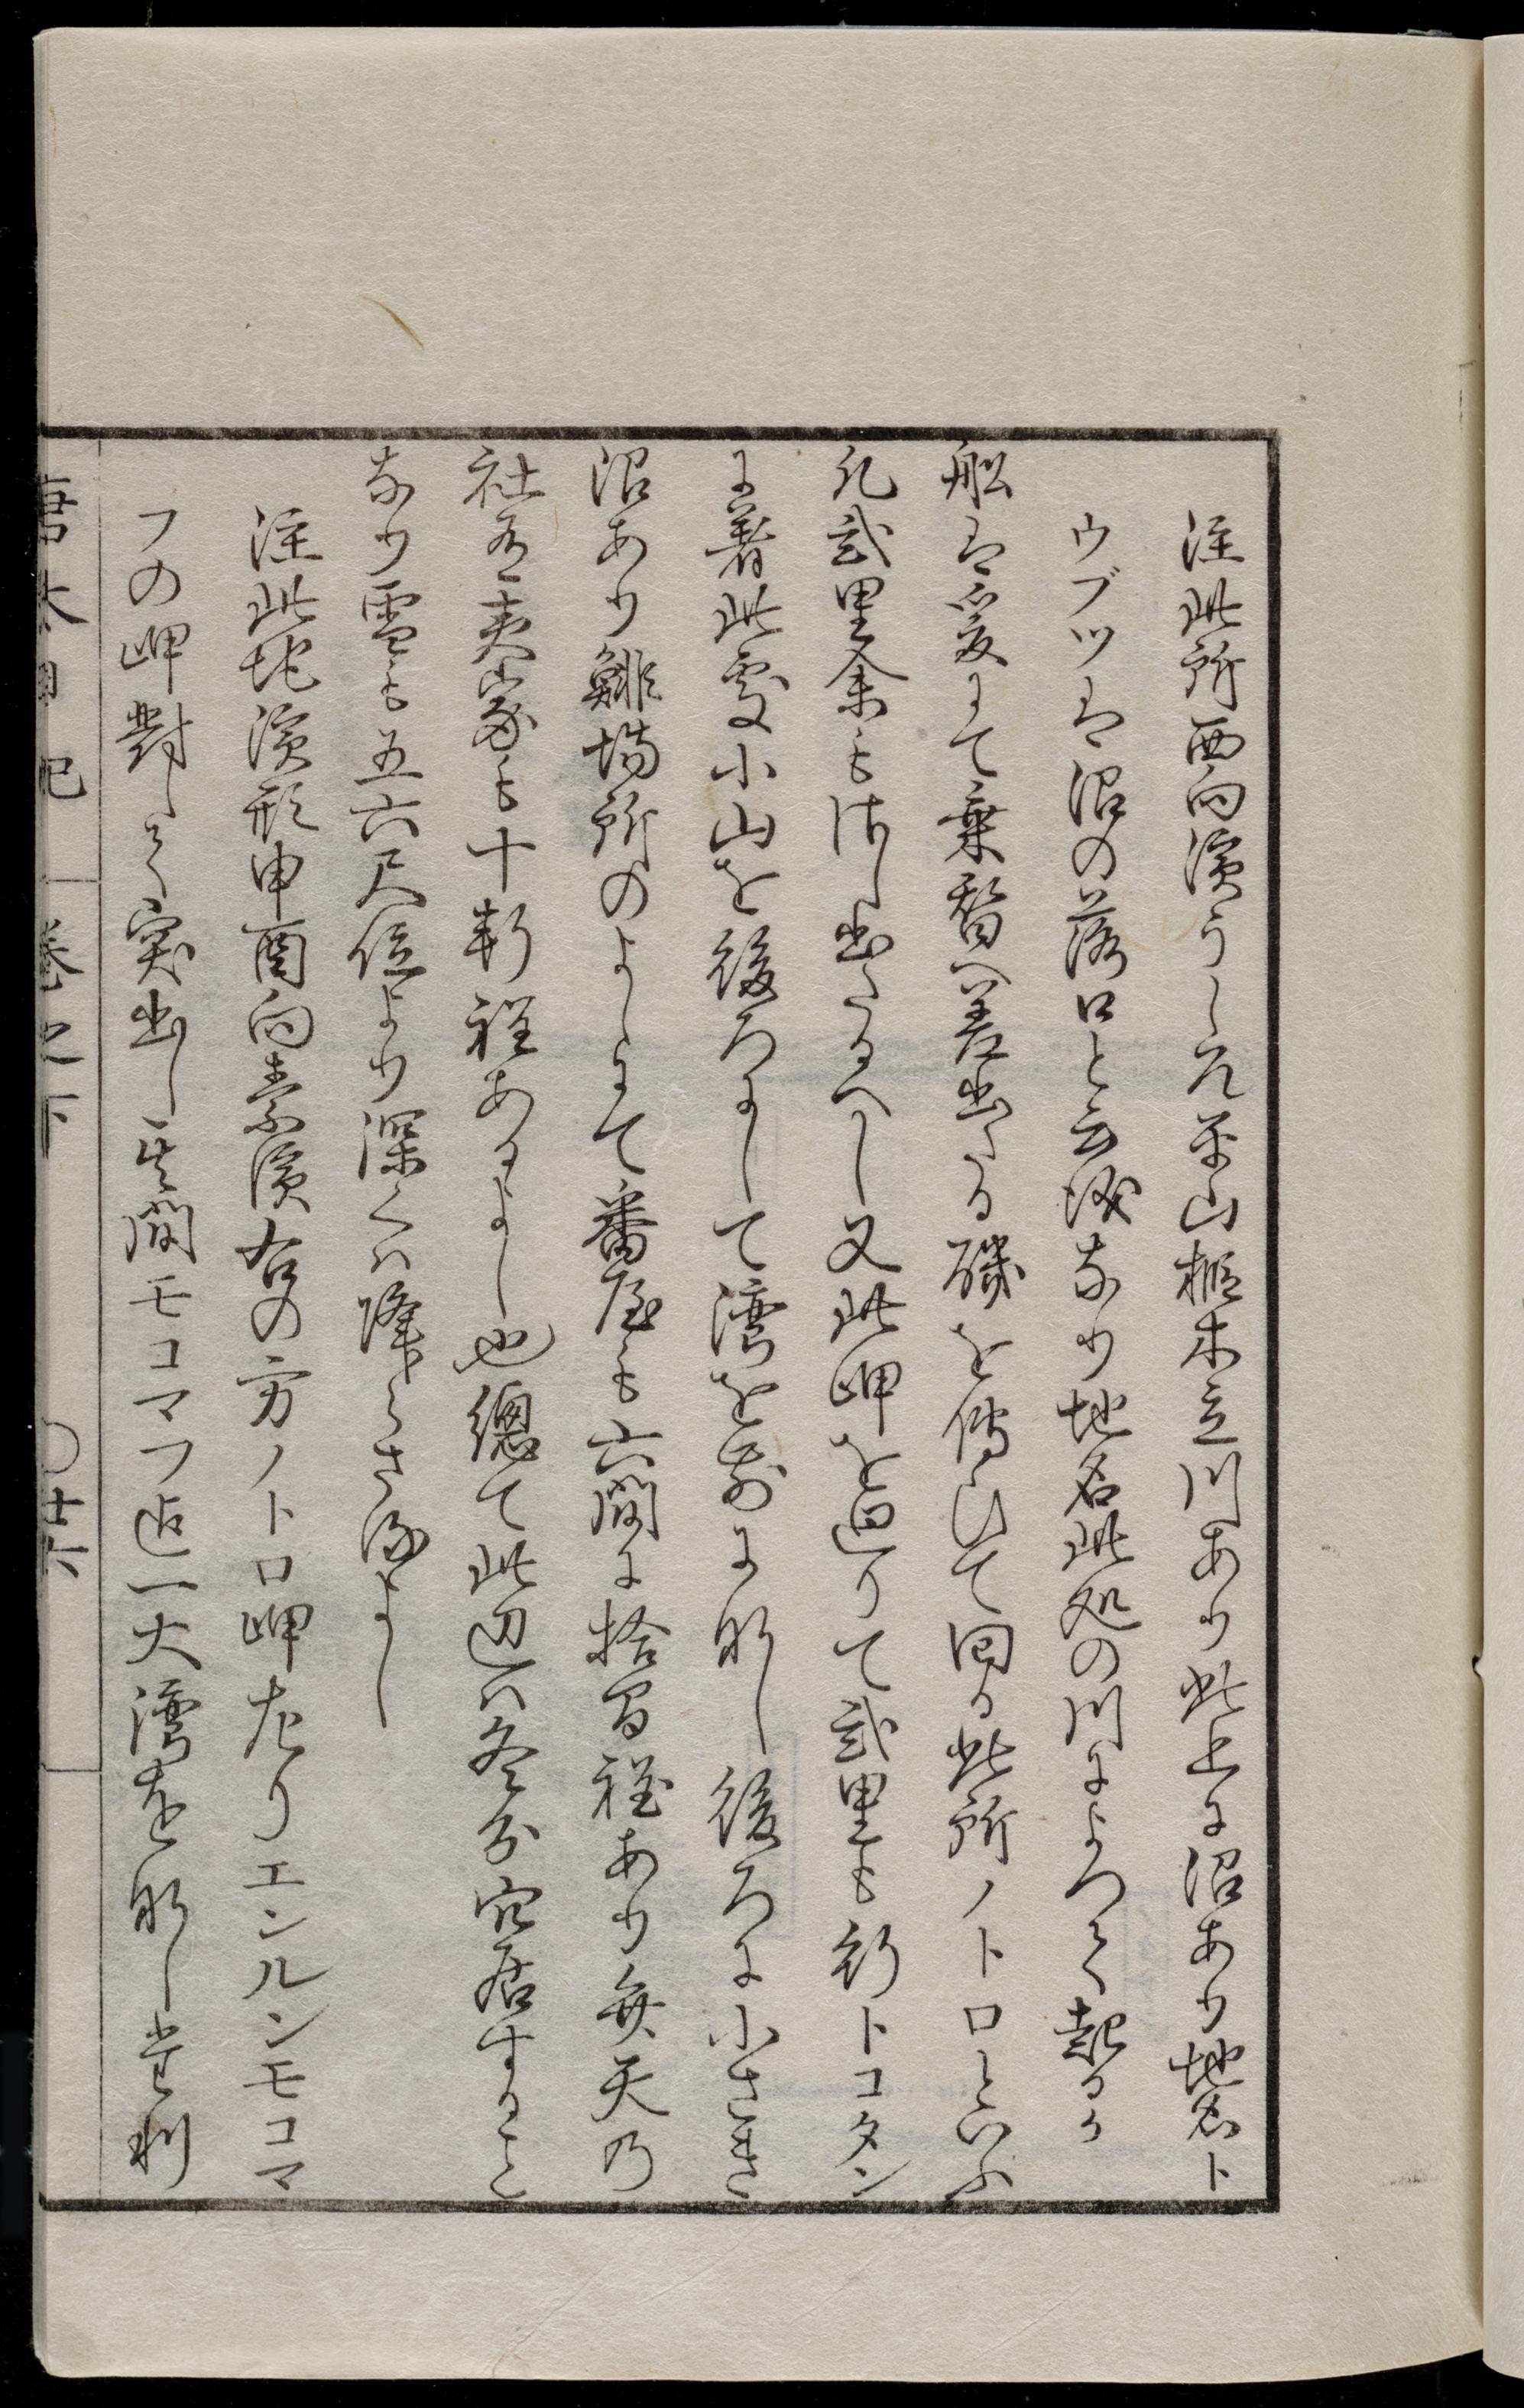 注此所西向濱うしろ平山椴木立川あり此上に沼あり地名ト
ウブツは沼の落口と云儀なり地名此処の川によつて起るか
船は爰にて乗替へ差出たる磯を傳ひて回る此所ノトロといふ
凡貮里余も海し出たるへし又此岬を廻りて貮里も行トコタン
に着此處小山を後ろにして湾を前に取し後ろに小さき
沼あり鯡場所のよしにて番屋も六間に拾間程あり弁天乃
社有夷家も十軒程あるよし也總て此辺は冬分穴居すること
なり雪も五六尺位より深くは降らさるよし
注此地濱形申酉向素濱右の方ノトロ岬左りエンルンモコマ
フの岬對して突出し其間モコマフ迄一大湾を取し
唐太日記　巻之下　〇廿六